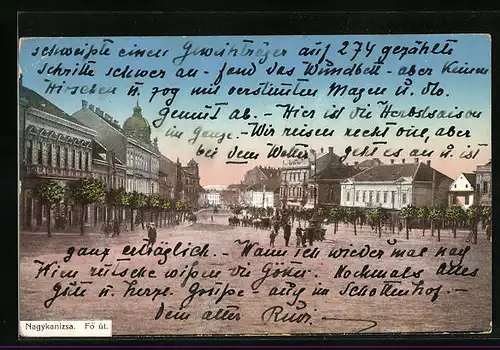 schweißte einen Geweihträger auf 274 gezählte
Schritte schwer an - fand das Wundbett - aber keinen
Hirschen u zog mit verstimten Magen u. dto.
Gemüt ab. - Hier ist die Herbstsaison
im Gange. - Wir reisen recht viel, aber
bei dem Wetter geht es an u ist
ganz erträglich. - Wann ich wieder mal nach
Wien rutsche wissen die Götter. Nochmals alles
Gute u herzl. Grüße - auch im Schottenhof -
Dein alter Rudi
Nagykanizsa. Fő út.